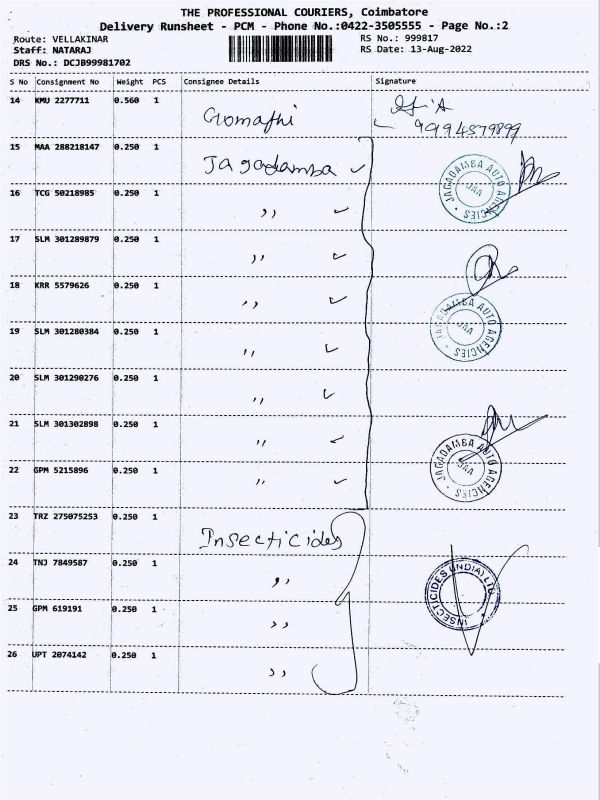 THE PROFESSIONAL COURIERS, Coimbatore
Delivery Runsheet - PCM - Phone No.:0422-3505555 - Page No.:2
Route: VELLAKINAR RS No.: 999817
Staff: NATARAJ RS Date: 13-Aug-2022
DRS No.: DCJB99981702
S No Consignment No Weight PCS Consignee Details Signature
14 KMU 2277711 0.560 1 Gomathi
15 MAA 288218147 0.250 1 Jagadamba ✓
16 TCG 50218985 0.250 1 ,, ✓
JAGADAMBA AUTO AGENCIES JAA
17 SLM 301289879 0.250 1 ,, ✓
18 KRR 5579626 0.250 1 ,, ✓
19 SLM 301280384 0.250 1 ,, ✓
JAGADAMBA AUTO AGENCIES JAA
20 SLM 301290276 0.250 1 ,, ✓
21 SLM 301302898 0.250 1 ,, ✓
22 GPM 5215896 0.250 1 ,, ✓
JAGADAMBA AUTO AGENCIES JAA
23 TRZ 275075253 0.250 1 Insecticides
24 TNJ 7849587 0.250 1 ,,
INSECTICIDES (INDIA) LTD
25 GPM 619191 0.250 1 ,,
26 UPT 2074142 0.250 1 ,,